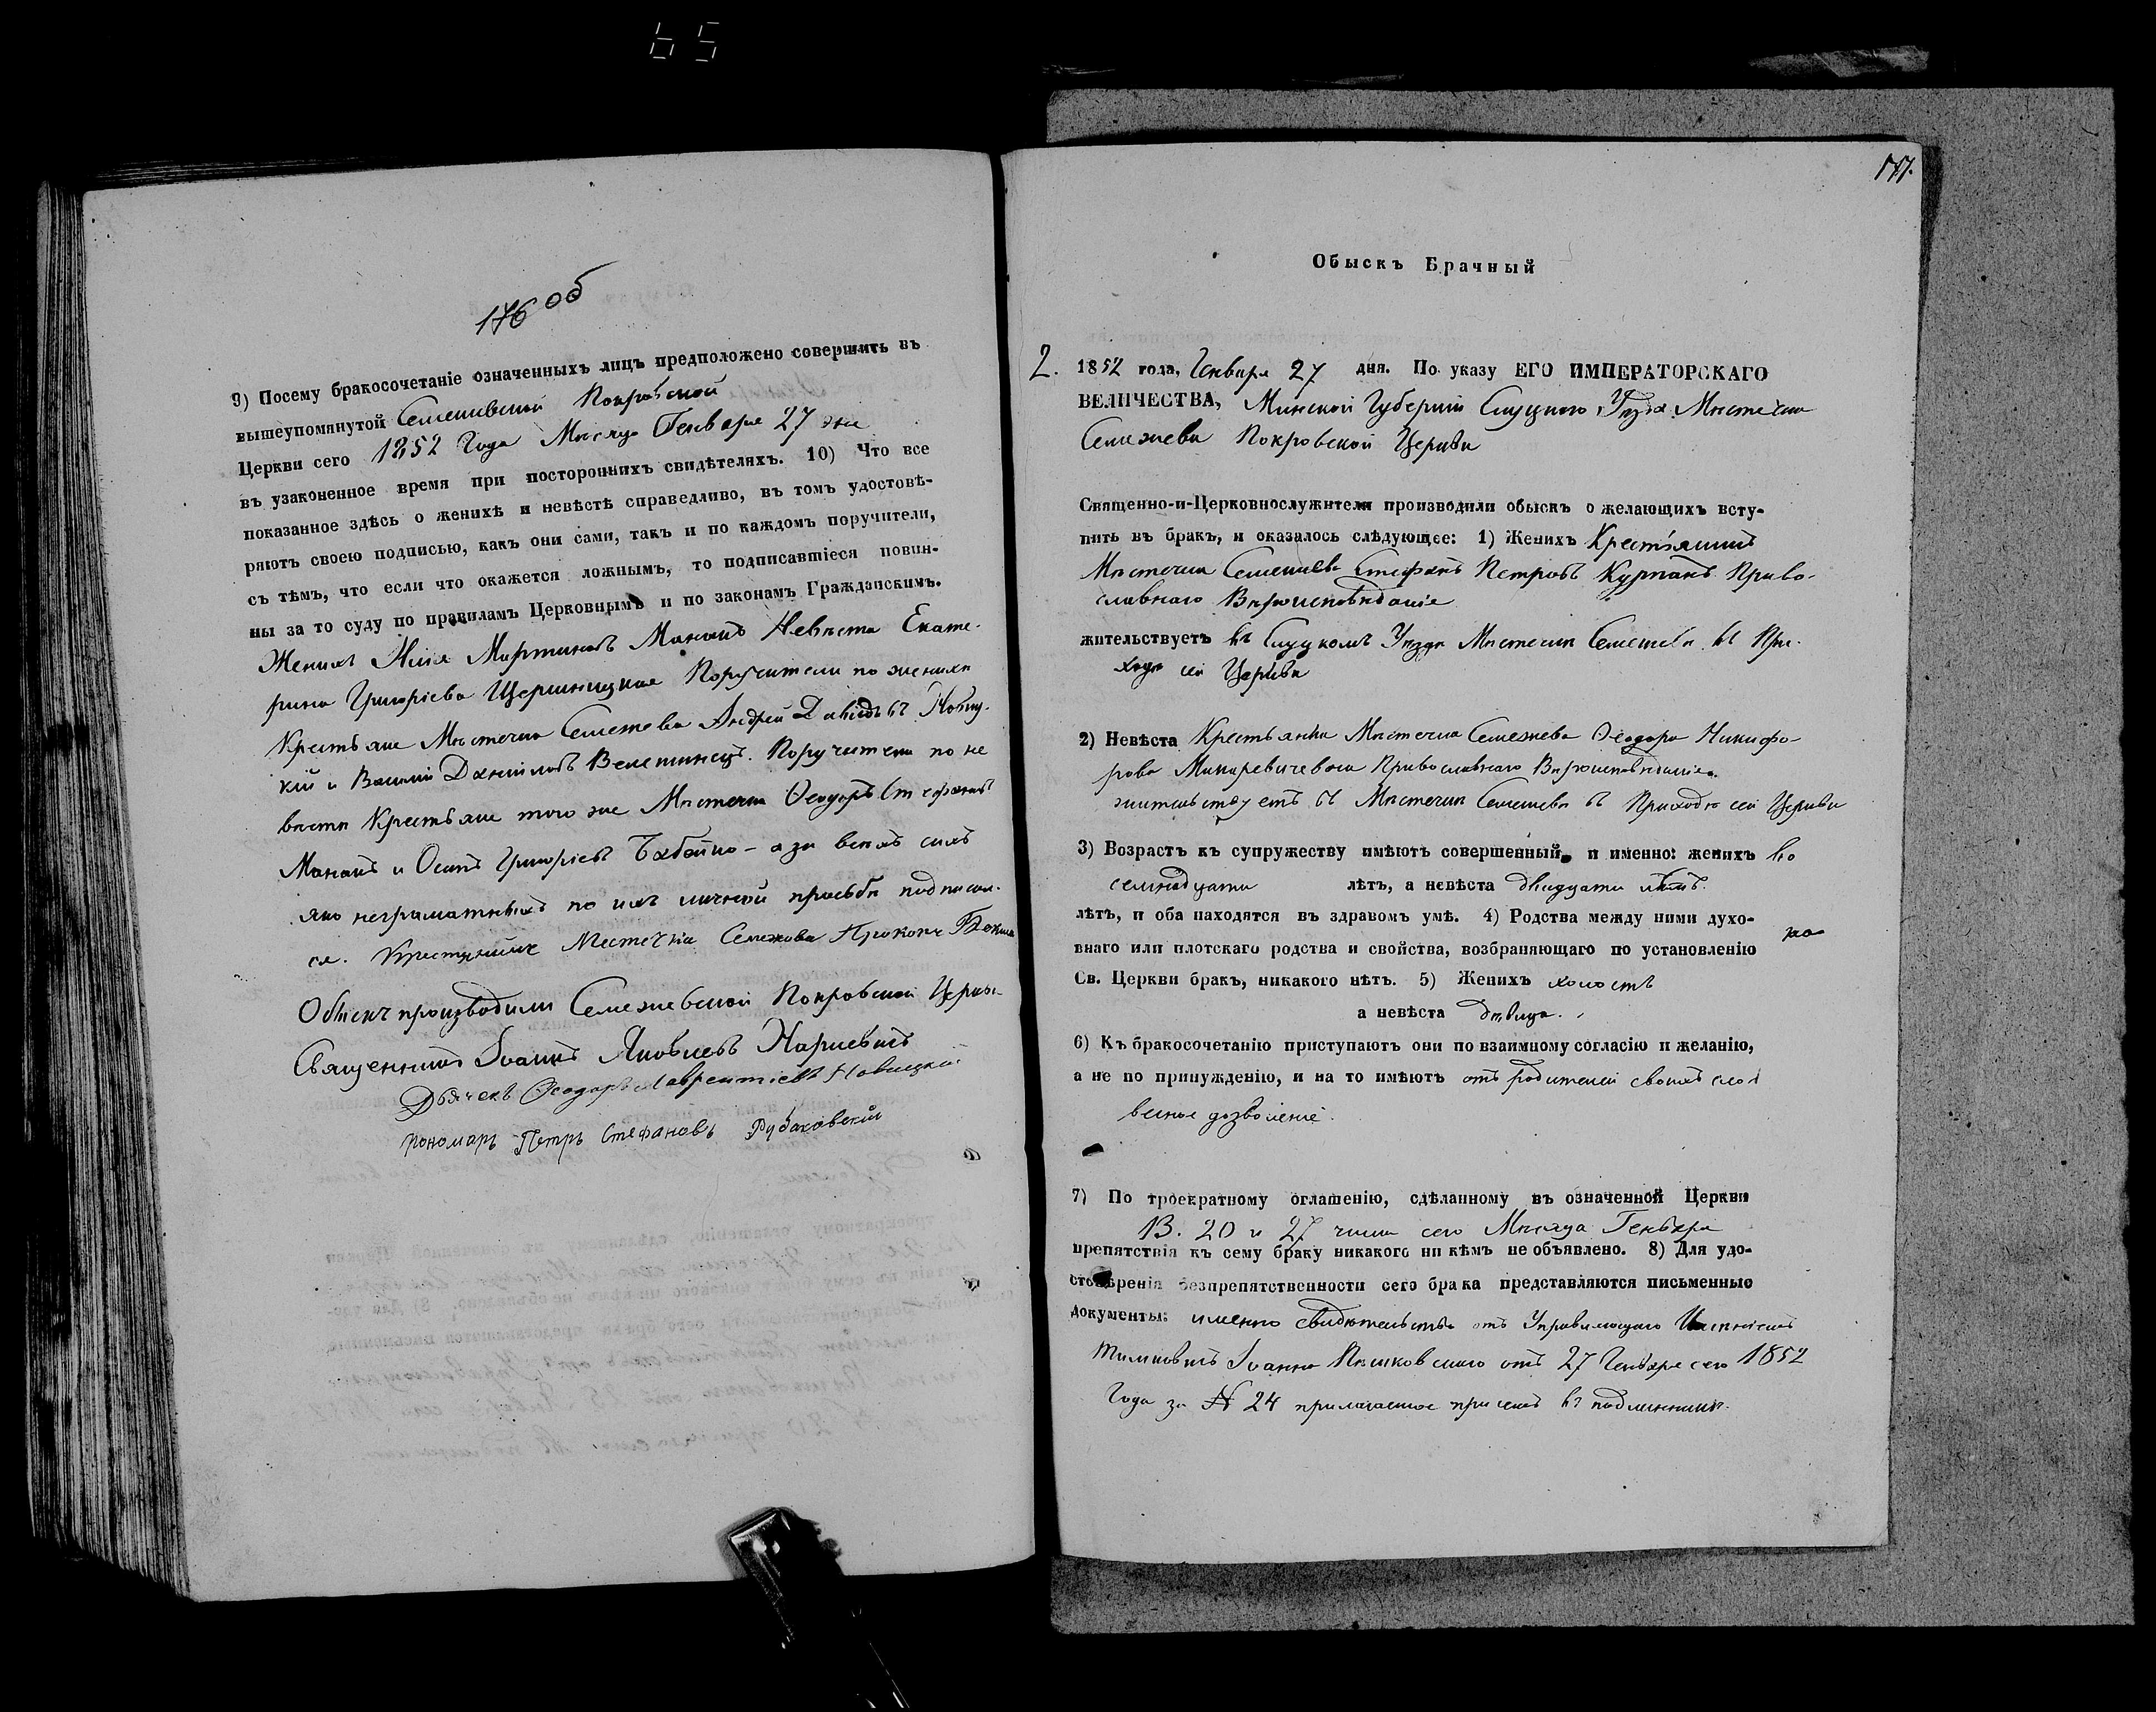 65
176 об
9) Посему бракосочетаніе означенныхъ лицъ предположено совершить въ
вышеупомянутой Семежевской Покровской
Церкви сего 1852 Года Мѣсяца Генваря 27 дня
въ узаконенное время при постороннихъ свидѣтеляхъ. 10) Что все
показанное здѣсь о женихѣ и невѣстѣ справедливо, въ томъ удостовѣ-
ряютъ своею подписью, какъ они сами, такъ и по каждомъ поручители,
съ тѣмъ, что если что окажется ложнымъ, то подписавшіеся повин-
ны за то суду по правиламъ Церковнымъ и по законамъ Гражданскимъ.
Женихъ Илія Мартиновъ Манакъ Невѣста Екате-
рина Григоріева Поручители по женихѣ
Крестьяне Мѣстечка Семежева Андрей Давидовъ Новиц-
кій и Василій Даниловъ Велетинецъ. Поручители по не
вѣстѣ Крестьяне того же Мѣстечка Ѳеодоръ Стефановъ
Манакъ и Осипъ Григоріевъ Бабейко - а за всѣхъ ихъ
яко неграматныхъ по ихъ личной прозьбѣ подписал-
ся. Местечка Семежова Прокопъ
Обыскъ производили Семежевской Покровской Церкви
Священникъ Іоаннъ Яковлевъ Наркевичъ
Дьячекъ Ѳеодоръ Лаврентіевъ Новицкій
пономарь Петръ Стефановъ Рубановскій
177.
Обыскъ Брачный
2. 1852 года, Генваря 27 дня. По указу ЕГО ИМПЕРАТОРСКАГО
ВЕЛИЧЕСТВА, Минской Губерніи Слуцкого Уѣзда Мѣстечка
Семежева Покровской Церкви
Священно-и-Церковнослужители производили обыскъ о желающихъ всту-
пить въ бракъ, и оказалось слѣдующее: 1) Женихъ Крестьянинъ
Мѣстечка Семежева Стефанъ Петровъ Курпанъ Право-
славнаго Вѣроисповѣданія
жительствуетъ въ Слуцкомъ Уѣздѣ Мѣстечкѣ Семежевѣ въ При-
ходѣ сей Церкви
2) Невѣста Крестьянка Мѣстечка Семежева Ѳеодора Никифо-
рова Макаревичевна Православнаго Вѣроисповѣданія
жительствуетъ въ Мѣстечкѣ Семежевѣ въ Приходѣ сей Церкви
3) Возрастъ къ супружеству имѣютъ совершенный, и именно: женихъ во
семнадцати лѣтъ, а невѣста двадцати лѣтъ.
лѣтъ, и оба находятся въ здравомъ умѣ. 4) Родства между ними духо-
внаго или плотскаго родства и свойства, возбраняющаго по установленію
Св. Церкви бракъ, никакого нѣтъ. 5) Женихъ холостъ
а невѣста дѣвица.
6) Къ бракосочетанію приступаютъ они по взаимному согласію и желанію,
а не по принужденію, и на то имѣютъ отъ родителей своихъ слов
весное дозволеніе.
7) По троекратному оглашенію, сдѣланному въ означенной Церкви
13. 20 и 27 числа сего Мѣсяца Генваря
препятствія къ сему браку никакого ни кѣмъ не объявлено. 8) Для удо-
стовѣренія безпрепятственности сего брака представляются письменные
документы: именно свидѣтельство отъ Управляющаго Имѣніемъ
Тимковичъ Іоанна отъ 27 Генваря сего 1852
Года за № 24 прилагаемое при семъ въ подлинникѣ.